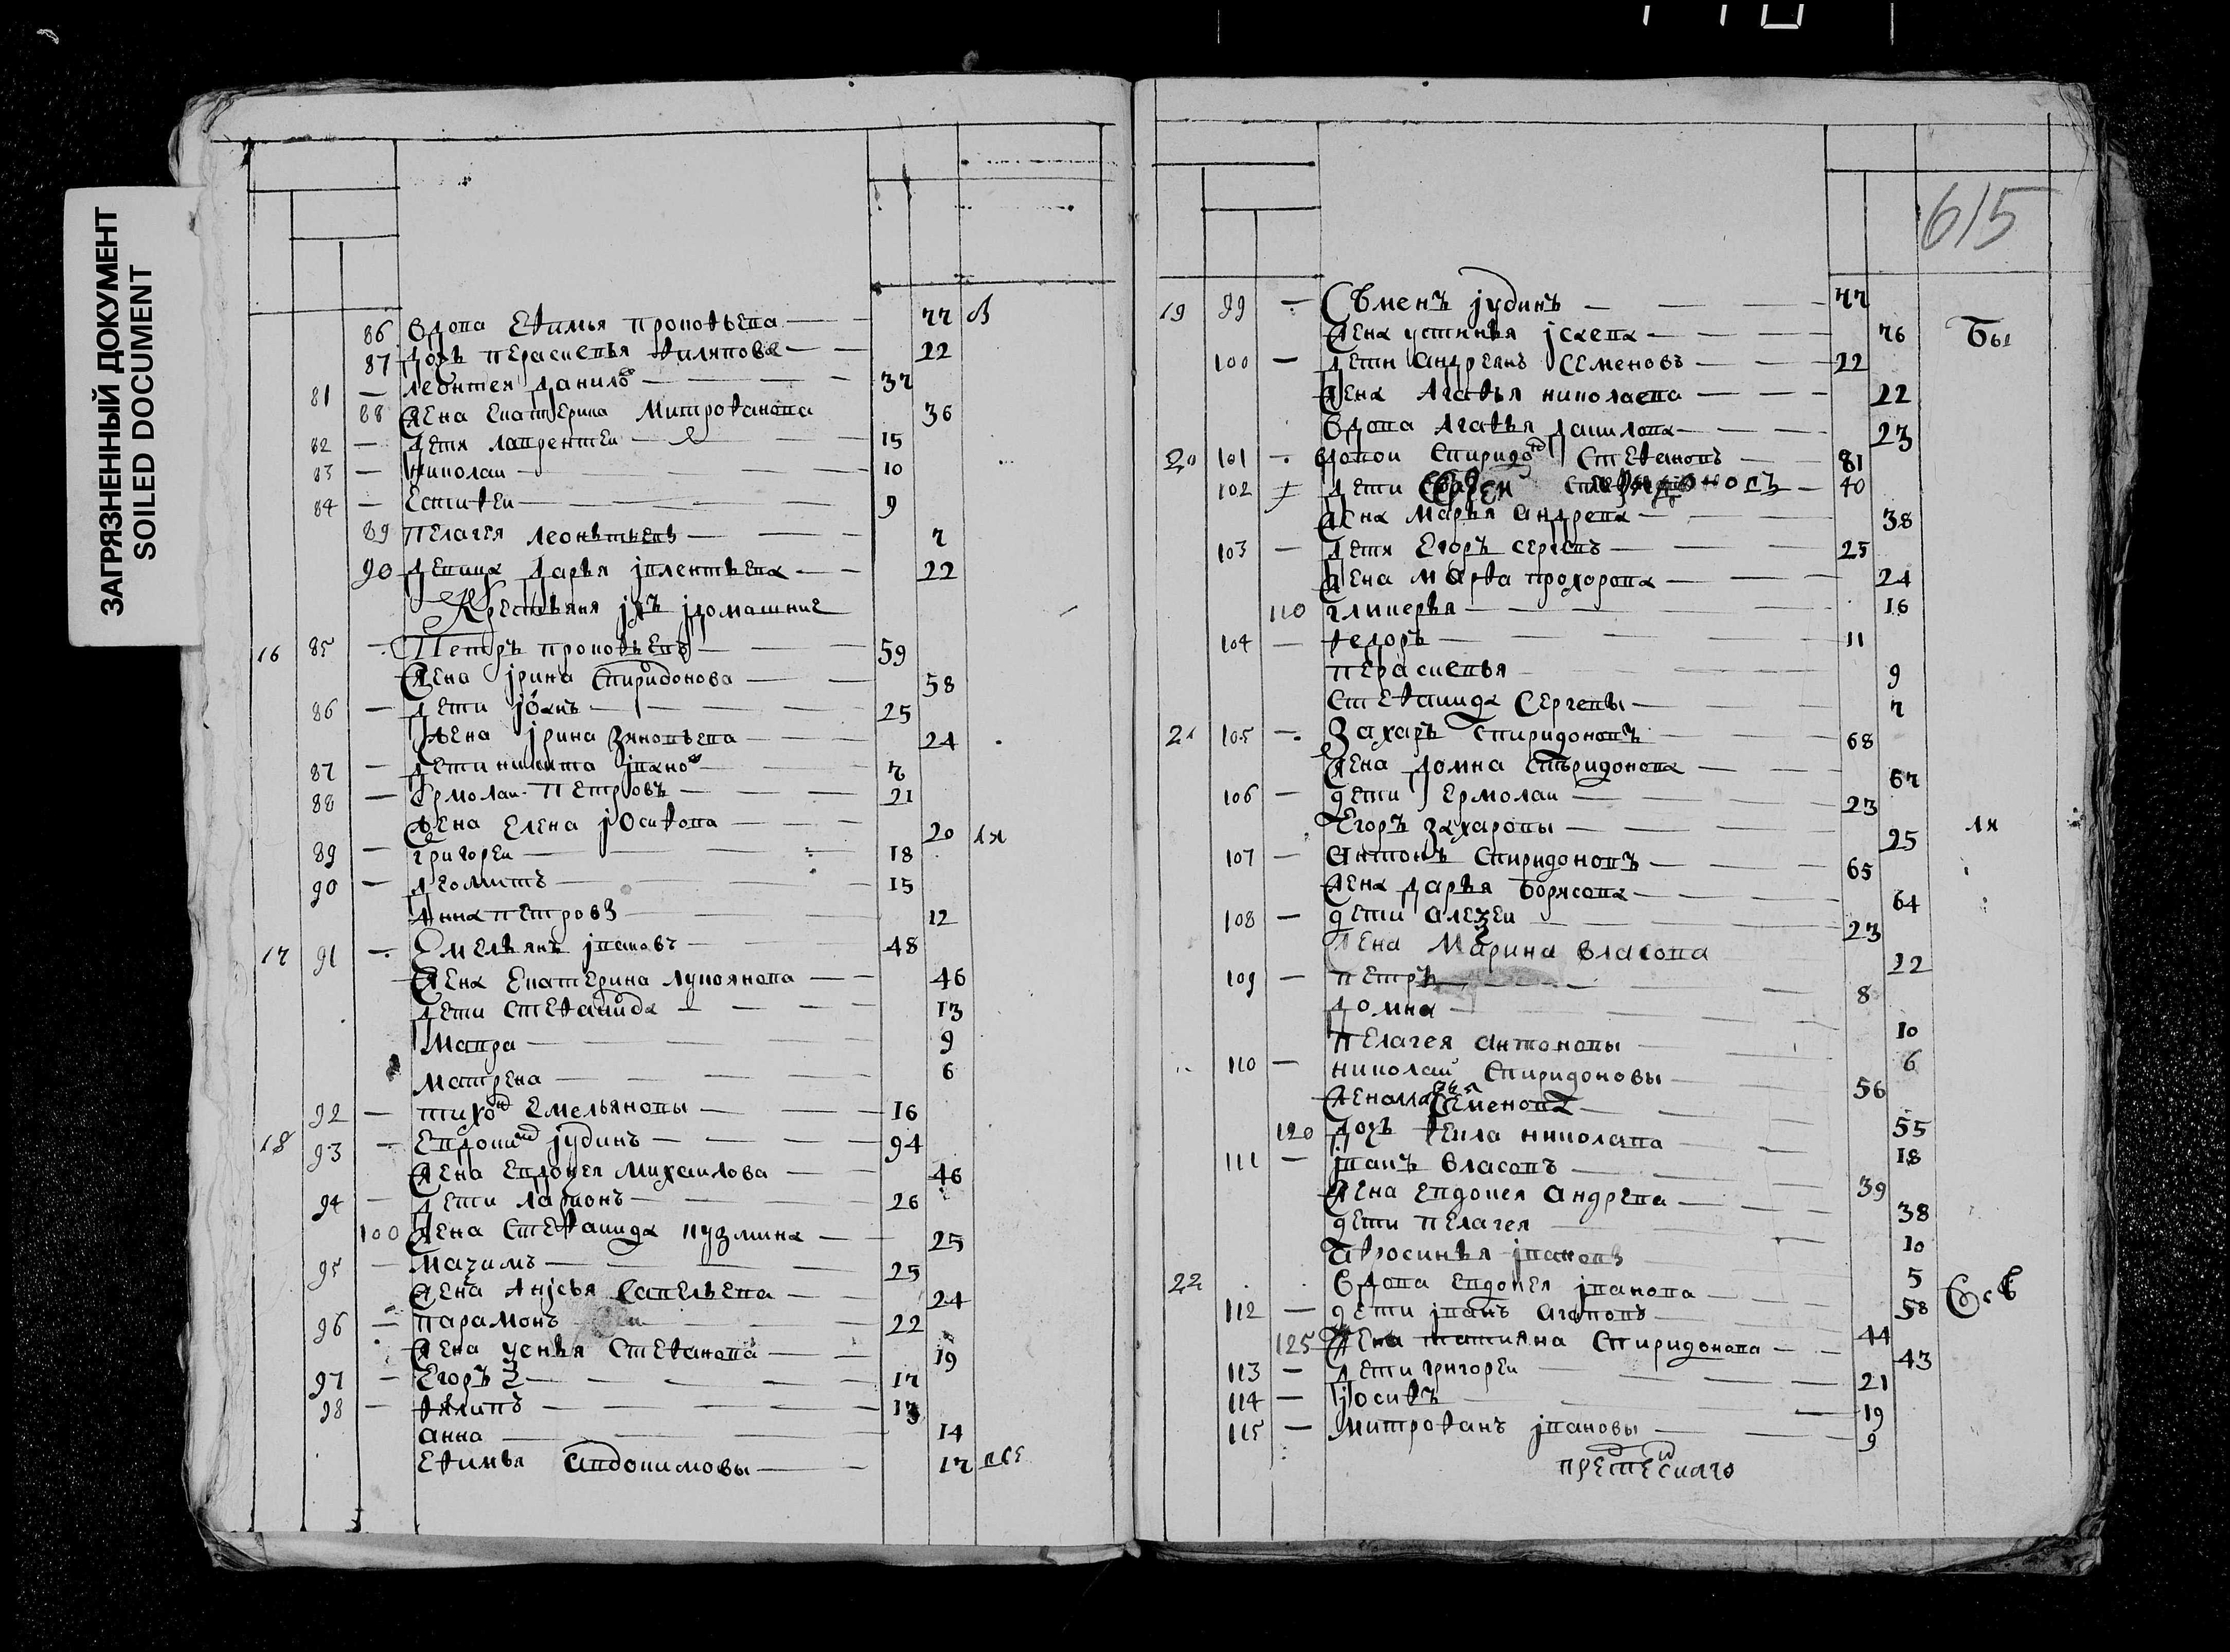 ЗАГРЯЗНЕННЫЙ ДОКУМЕНТ
SOILED DOCUMENT
86 вдова Ефимья прокофьева — 77 В
87 дочь перасковья филипова — 22
81 — леонтей данилов — 37
88 жена екатерина Митрофанова 36
82 — детя лаврентеи — 15
83 — николаи — 10
84 — Естифеи — 9
89 пелагея леонтьева — 7
90 девица дарья ивлентьева — 22
Крестьяня их домашние
16 85 — Петръ прокофьевъ — 59
жена ирина спиридонова — 58
86 — дети иванъ — 25
жена ирина зиновьева — 24
87 — дети никита ивановъ — 7
88 — Ермолаи петровъ — 21
жена елена иосифова — 20 ля
89 — григореи — 18
90 — леонтъ — 15
Анна петровы — 12
17 91 — Емельянъ ивановъ — 48
жена екатерина лукоянова — 46
дети стефанида — 13
Мавра — 9
матрена — 6
92 — тихонъ емельяновы — 16
18 93 — евдокимъ июдинъ — 94
жена евдокея михаилова — 46
94 — дети ларионъ — 26
100 жена стефанида кузмина — 25
95 — Мазимъ — 25
жена анисья савельева — 24
96 — парамонъ — 22
жена усенья стефанова — 19
97 — Егоръ — 17
98 — филипъ — 13
анна — 14
Ефимья авдокимовы — 17 все
615
19 99 — Сьменъ июдинъ — 77
жена устинья исаева — 76 Бы
100 — дети андреянъ семеновъ — 22
жена Агафья николаева — 22
вдова Агафья данилова — 23
20 101 — вдовои спиридонъ стефановъ — 81
102 — дети Сергеи спиридоновъ — 40
жена марья андреева — 38
103 — детя егоръ сергеевъ — 25
жена марфа прохорова — 24
110 гликерья — 16
104 — федоръ — 11
перасковья 9
стефанида Сергеевы — 7
21 105 — Захаръ спиридоновъ — 68
жена домна спиридонова — 67
106 — дети ермолаи — 23
Егоръ захаровы — 25 ля
107 — антонъ спиридоновъ — 65
жена дарья борисова — 64
108 — дети алезеи — 23
жена Марина власова 22
109 — петръ — 8
домна — 10
пелагея антоновы — 6
110 — николаи спиридоновы — 56
жена марья Семенова — 55
120 дочь фекла николаева — 18
111 — иванъ власовъ — 39
жена евдокея андреева — 38
дети пелагея — 10
афросинья ивановы 5
22 вдова евдокея иванова — 58 Есв
112 — дети иванъ агаповъ — 44
125 жена татияна спиридонова — 43
113 — дети григореи 21
114 — иосифъ — 19
115 — митрофанъ ивановы — 9